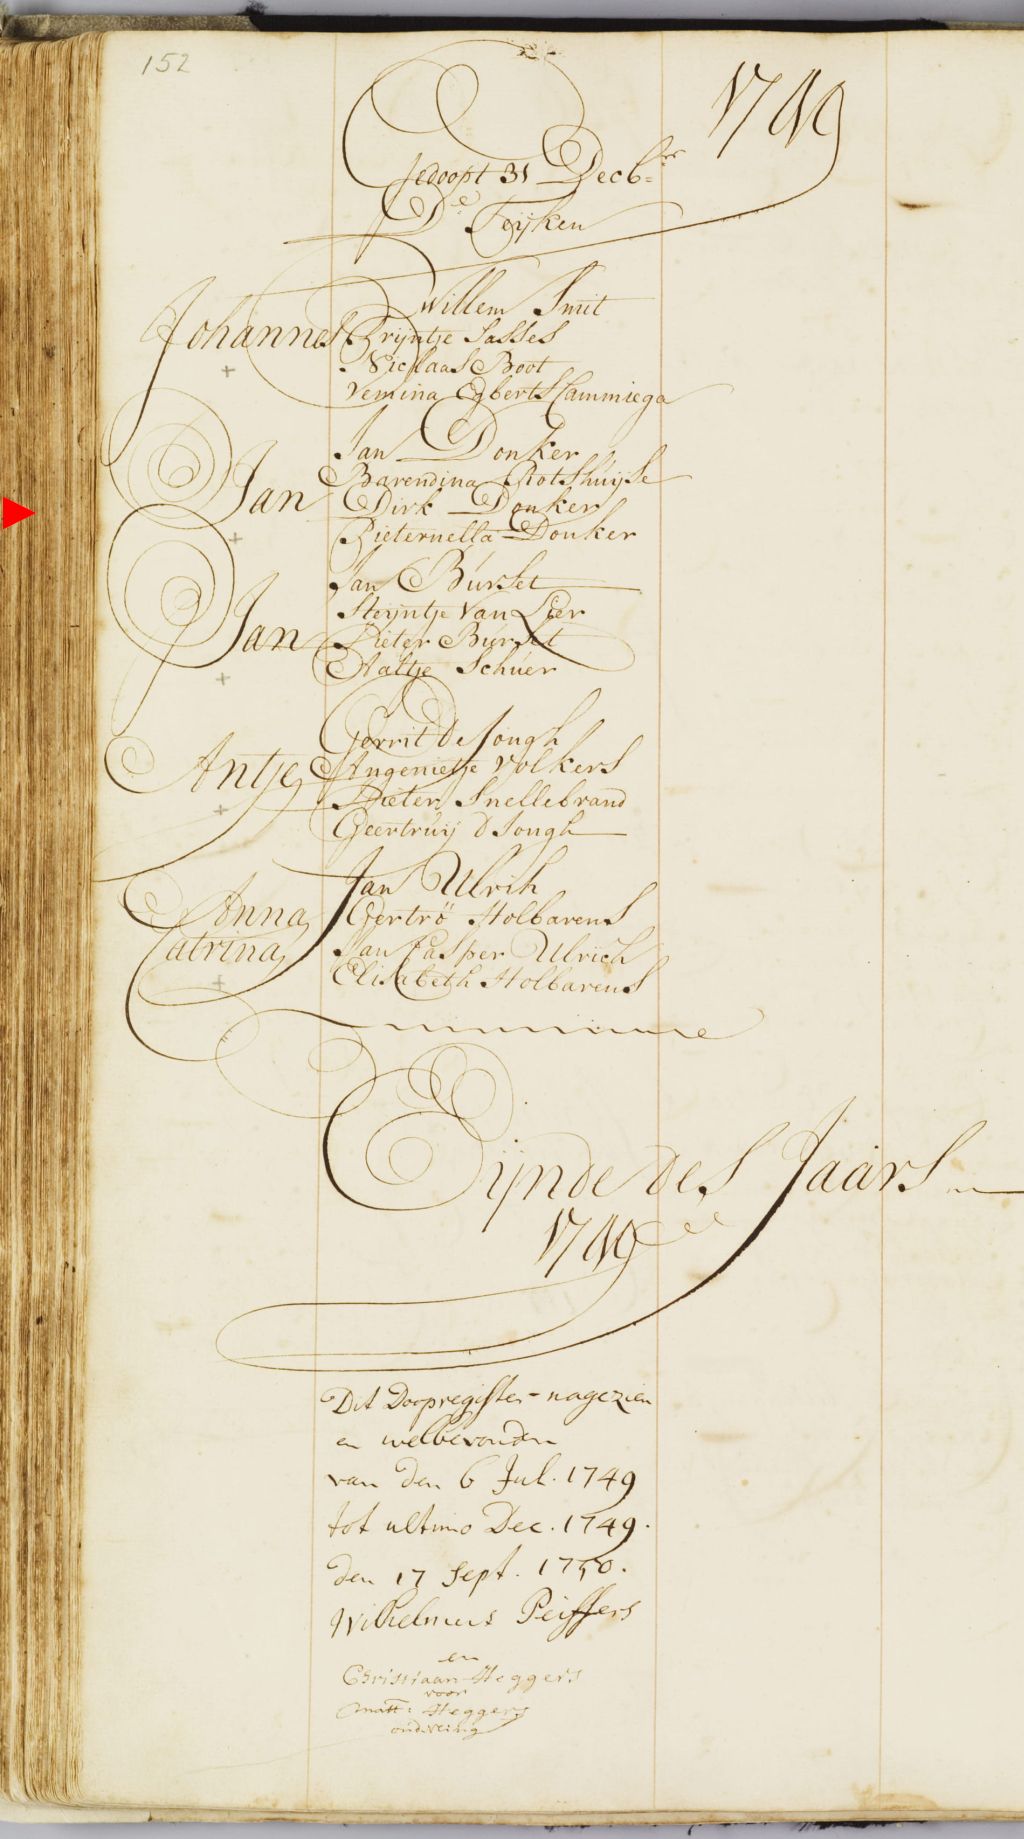 152
1749
Gedoopt 31 Decbr
De Teijken
Willem Smit
Johannes Trijntje Sasses
Niclaas Boot
Vemina Egberts Cammiega
Jan Donker
Barendina Rotshuijse
Jan Dirk Donker
Pieternella Donker
Jan Burset
Steijntje Van Lier
Jan Pieter Burset
Aaltje Schuer
Gerrit De Jongh
Antje Angenietje Volkers
Pieter Snellebrand
Geertruij D Jongh
Jan Ulrih
Anna Gertrö Holbarens
Catrina Jan Casper Ulrich
Elisabeth Holbarens
Eijnde des Jaars
1749
Dit Doopregister nagezien
en welbevonden
van den 6 Jul. 1749
tot ultimo Dec. 1749.
den 17 Sept. 1750.
Wilhelmus Peiffers
en
Christiaan Heggers
voor
Matt: Heggers
ouderling